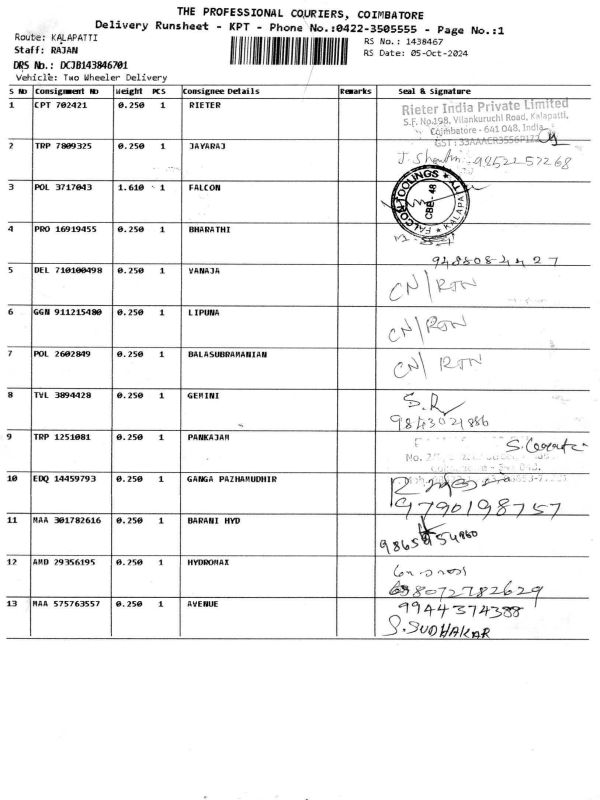 THE PROFESSIONAL COURIERS, COIMBATORE
Delivery Runsheet - KPT - Phone No.:0422-3505555 - Page No.:1
Route: KALAPATTI
RS No.: 1438467
Staff: RAJAN
RS Date: 05-Oct-2024
DRS No.: DCJB143846701
Vehicle: Two Wheeler Delivery
S No Consignment No Weight PCS Consignee Details Remarks Seal & Signature
1 CPT 702421 0.250 1 RIETER
Rieter India Private Limited
S.F. No.198, Vilankuruchi Road, Kalapatti,
Coimbatore - 641 048, India
GST : 33AAACR3556P1ZZ
2 TRP 7809325 0.250 1 JAYARAJ
9852257268
3 POL 3717043 1.610 1 FALCON
FALCON TOOLINGS * KALAPATTY * CBE - 48
4 PRO 16919455 0.250 1 BHARATHI
5 DEL 710100498 0.250 1 VANAJA
CN/RTN
6 GGN 911215480 0.250 1 LIPUNA
CN/RTN
7 POL 2602849 0.250 1 BALASUBRAMANIAN
CN/ RTN
8 TVL 3894428 0.250 1 GEMINI
S.R
9843021886
9 TRP 1251081 0.250 1 PANKAJAM
10 EDQ 14459793 0.250 1 GANGA PAZHAMUDHIR
9790198757
11 MAA 301782616 0.250 1 BARANI HYD
12 AMD 29356195 0.250 1 HYDROMAX
8072782629
13 MAA 575763557 0.250 1 AVENUE
9944374388
S.SUDHAKAR